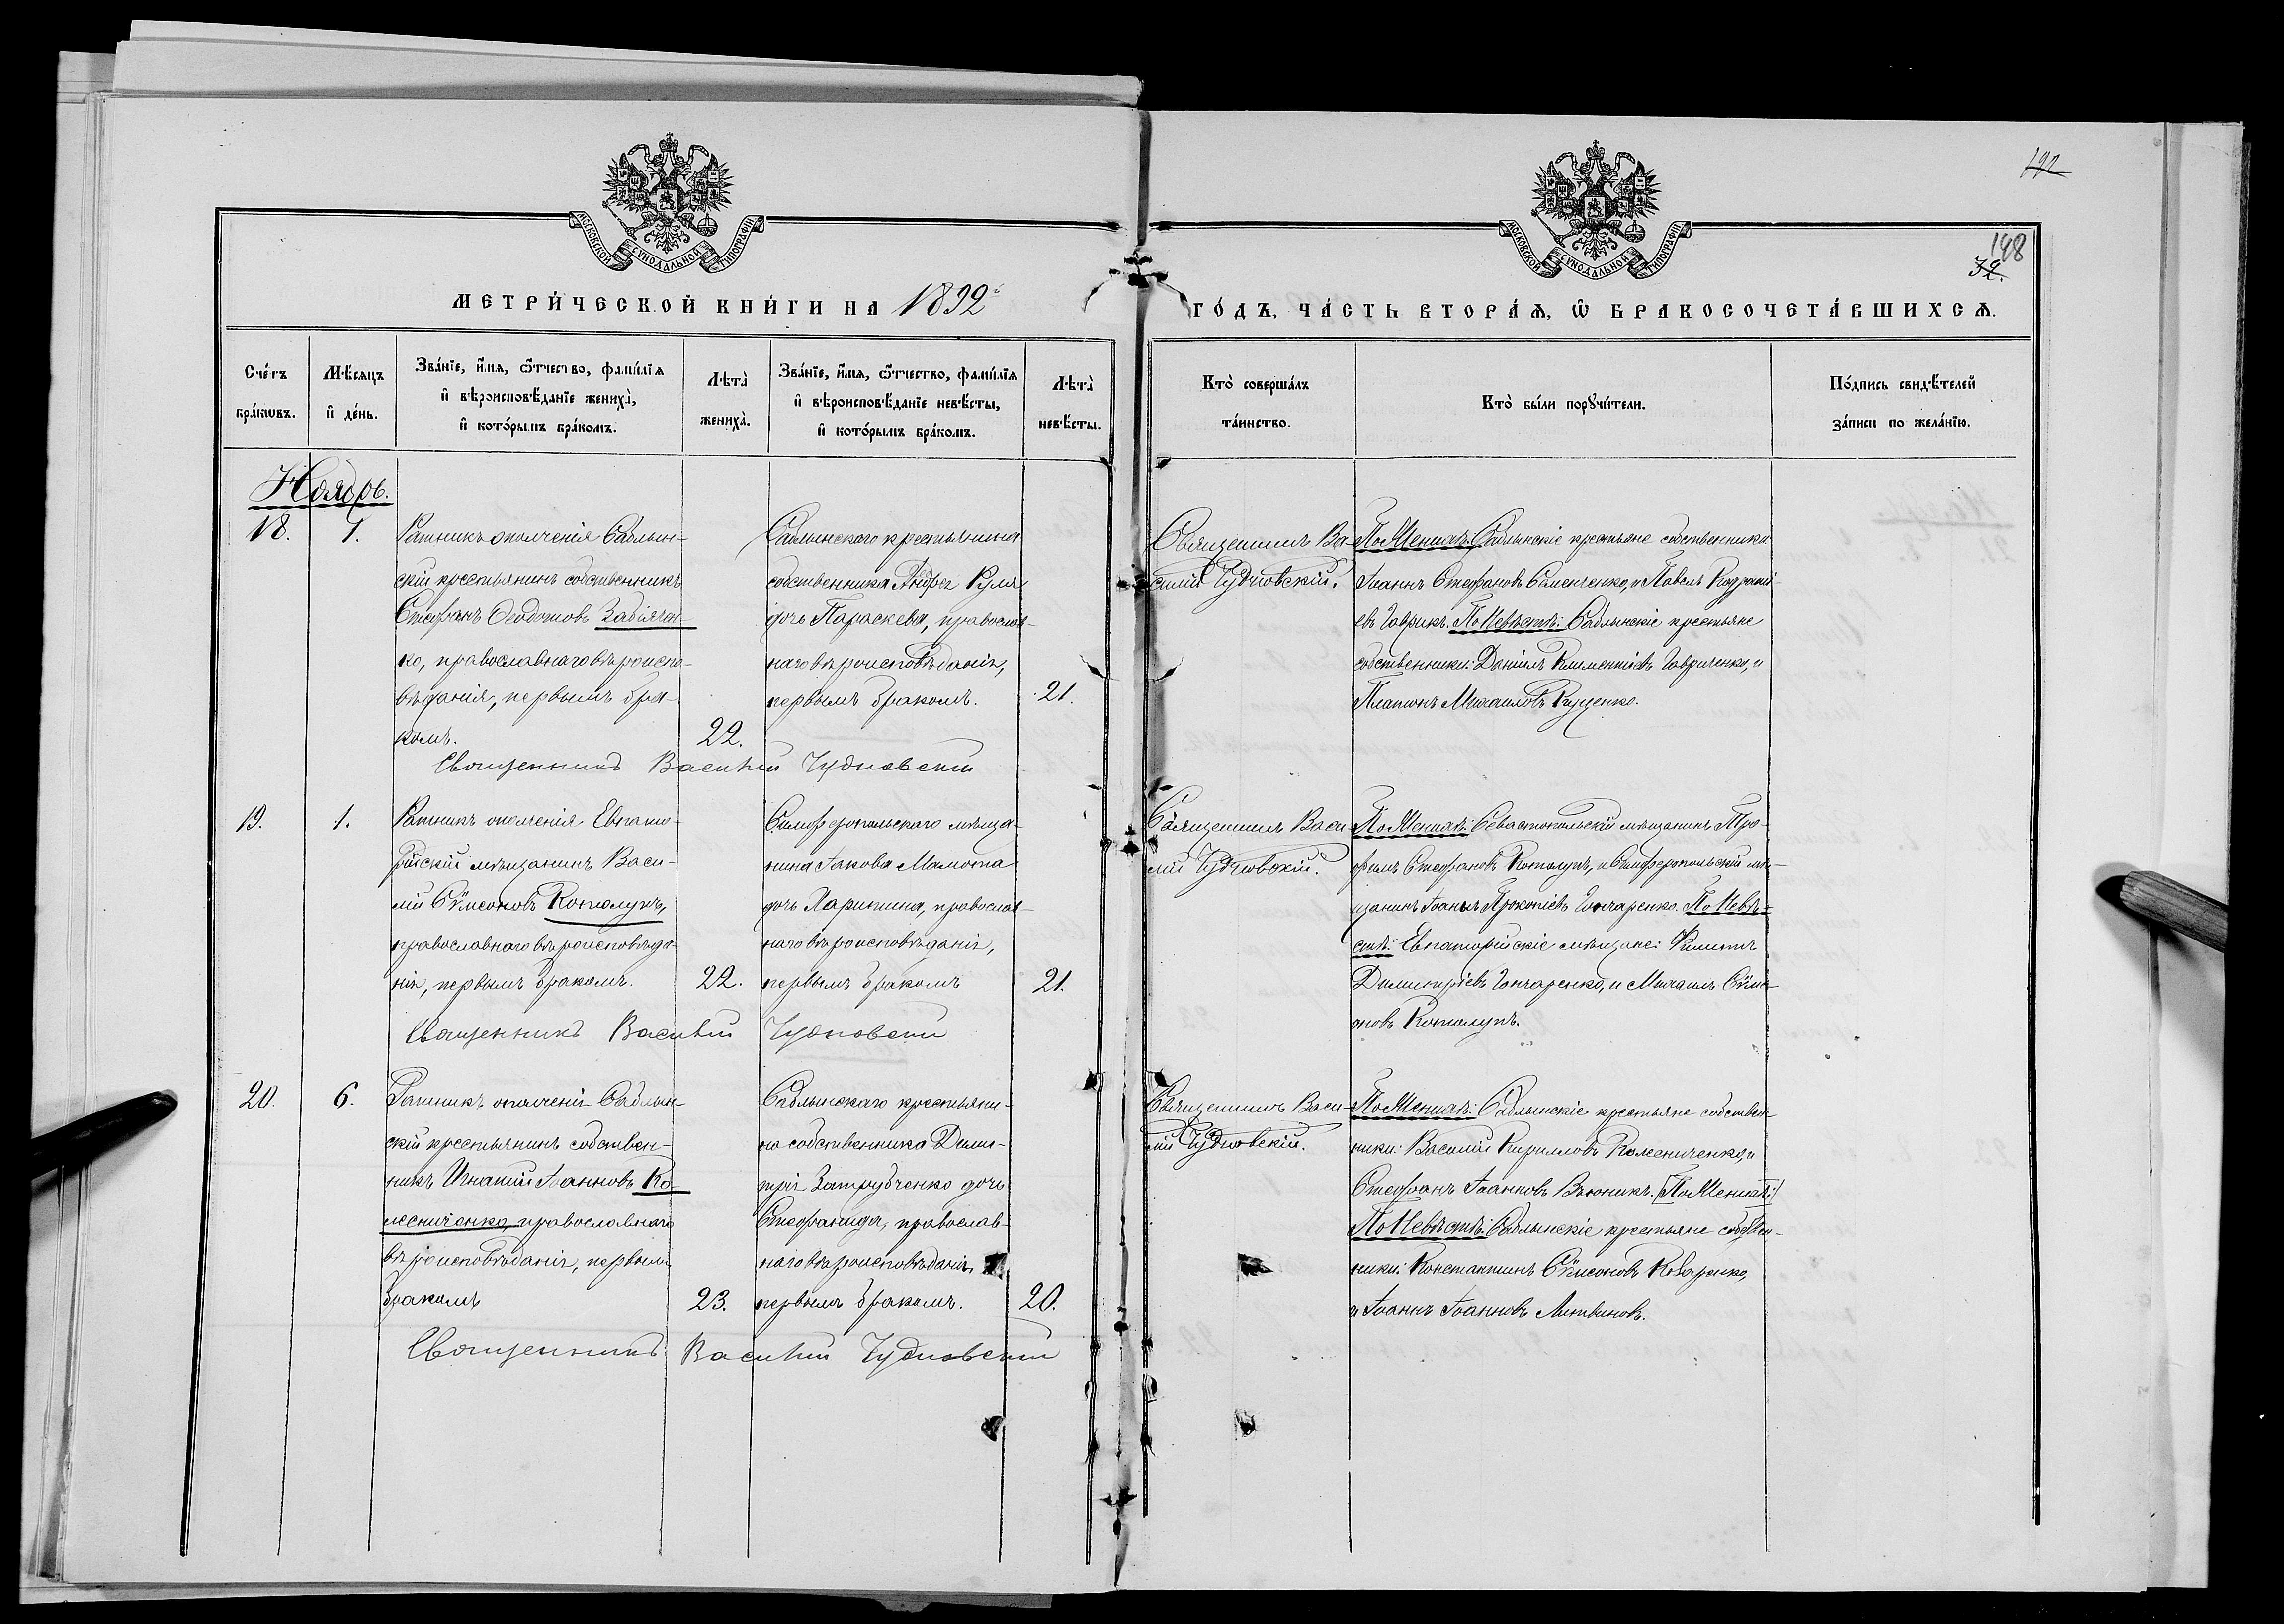 192
148
32.
МОСКОВСКОЙ СѴНОДАЛЬНОЙ ТИПОГРАФІИ
МОСКОВСКОЙ СѴНОДАЛЬНОЙ ТИПОГРАФІИ
МЕТРИ́ЧЕСКОЙ КНИ́ГИ НА 1892
ГО́ДЪ, ЧА́СТЬ ВТОРА́Ѧ, Ѿ БРАКОСОЧЕТА́ВШИХСѦ.
Сче́тъ бра́кѡвъ.
Мѣ́сѧцъ и҆ де́нь.
Зва́нїе, и҆́мѧ, ѻ҆́тчество, фами́лїѧ
и҆ вѣроисповѣ́данїе жениха̀,
и҆ кото́рымъ бра́комъ.
Лѣта̀ жениха̀.
Зва́нїе, и҆́мѧ, ѻ҆́тчество, фами́лїѧ
и҆ вѣроисповѣ́данїе невѣ́сты,
и҆ кото́рымъ бра́комъ.
Лѣта̀ невѣ́сты.
Кто̀ соверша́лъ
та́инство.
Кто̀ бы́ли порꙋчи́тели.
По́дпись свидѣ́телей
за́писи по жела́нїю.
Ноябрь.
18.
1.
Ратникъ ополченія Саблын-
скій крестьянинъ собственникъ
Стефанъ Ѳеодотовъ Забіячен-
ко, православнаго вѣроиспо-
вѣданія, первымъ бра-
комъ.
22.
Саблынскаго крестьянина
собственника Андрея
дочь Параскева, православ-
наго вѣроисповѣданія,
первымъ бракомъ.
21.
Священникъ Ва-
силій Чудновскій.
По Женихѣ: Саблынскіе крестьяне собственники
Іоаннъ Стефановъ Семенченко, и Павелъ
евъ Гаврикъ. По Невѣстѣ: Саблынскіе крестьяне
собственники: Даніилъ Климентіевъ Гавриленко, и
Платонъ Михаиловъ Куценко.
Священникъ Василій Чудновскій
19.
1.
Ратникъ ополченія Евпато-
рійскій мѣщанинъ Васи-
лій Сѵмеоновъ Котолупъ,
православнаго вѣроисповѣда-
нія, первымъ бракомъ.
22.
Симферопольскаго мѣща-
нина Іакова Мамота
дочь Харитина, православ-
наго вѣроисповѣданія,
первымъ бракомъ
21.
Священникъ Васи-
лій Чудновскій.
По Женихѣ: Севастопольскій мѣщанинъ Тро-
фимъ Стефановъ Котолупъ, и Симферопольскій мѣ-
щанинъ Іоаннъ Прокопіевъ Гончаренко. По Невѣ-
стѣ: Евпаторійскіе мѣщане: Филиппъ
Димитріевъ Гончаренко, и Михаилъ Сѵме-
оновъ Котолупъ.
Священникъ Василій Чудновскій
20.
6.
Ратникъ ополченія Саблын-
скій крестьянинъ собствен-
никъ Игнатій Іоанновъ Ко-
лесниченко, православнаго
вѣроисповѣданія, первымъ
бракомъ
23.
Саблынскаго крестьяни-
на собственника Дими-
трія Затрубченко дочь
Стефанида, православ-
наго вѣроисповѣданія,
первымъ бракомъ.
20.
Священникъ Васи-
лій Чудновскій.
По Женихѣ: Саблынскіе крестьяне собствен-
ники: Василій Кирилловъ Колесниченко, и
Стефанъ Іоанновъ Вьюникъ. [По Женихѣ:]
По Невѣстѣ: Саблынскіе крестьяне собствен-
ники: Константинъ Сѵмеоновъ
и Іоаннъ Іоанновъ Литвиновъ.
Священникъ Василій Чудновскій